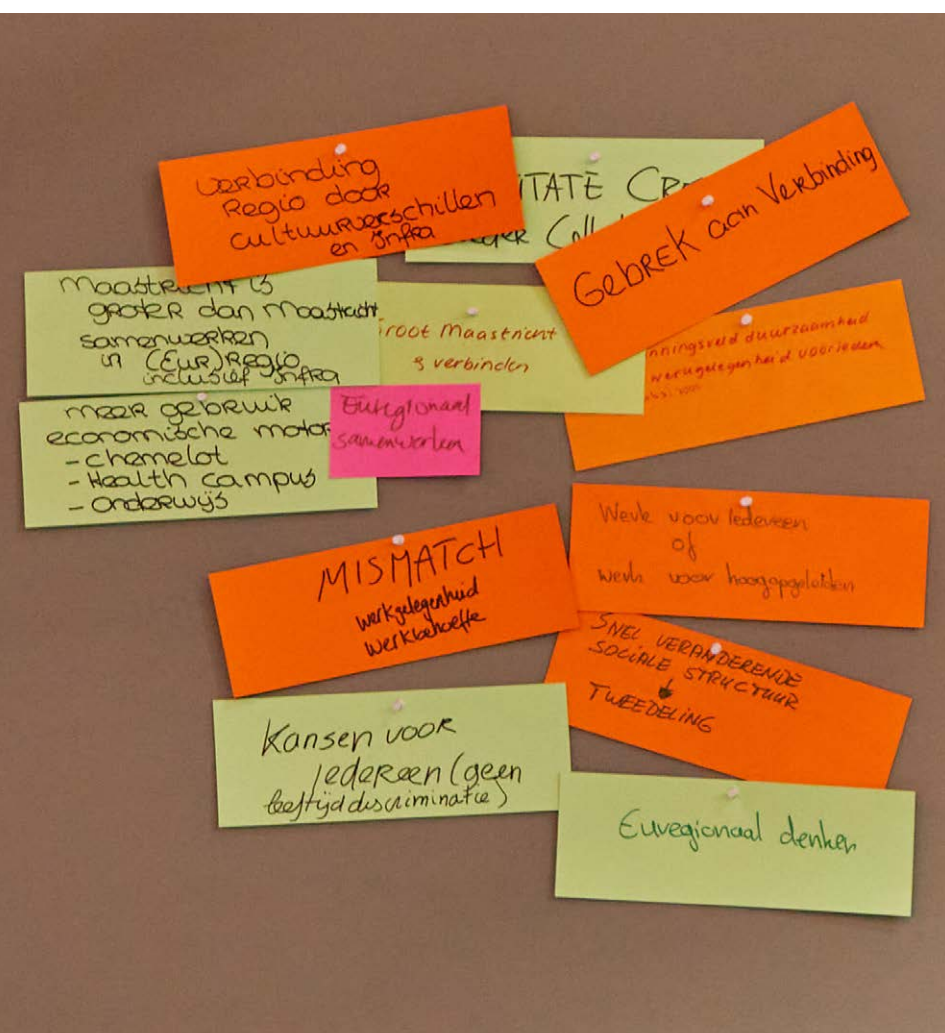 Verbinding
Regio door
cultuurverschillen
en infra
TATE CR
Gebrek aan Verbinding
Maastricht is
groter dan Maastricht
samenwerken
in (Eur)Regio
inclusief infra
root Maastricht
verbinden
nningsveld duurzaamheid
werkgelegenheid voor ieder
meer gebruik
economische motor
- chemelot
- Health campus
- onderwijs
Euregionaal
samenwerken
MISMATCH
werkgelegenheid
werkbehoefte
Werk voor Iedereen
of
werk voor hoogopgeleiden
SNEL VERANDERENDE
SOCIALE STRUCTUUR
↓
TWEEDELING
Kansen voor
iedereen (geen
leeftijd discriminatie)
Euregionaal denken